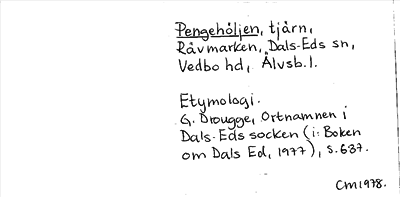 Pengehöljen, tjärn,
Råvmarken, Dals-Eds sn,
Vedbo hd, Älvsb. l.
Etymologi.
G. Drougge, Ortnamnen i
Dals-Eds socken (i: Boken
om Dals Ed, 1977), s. 637.
CM 1978.